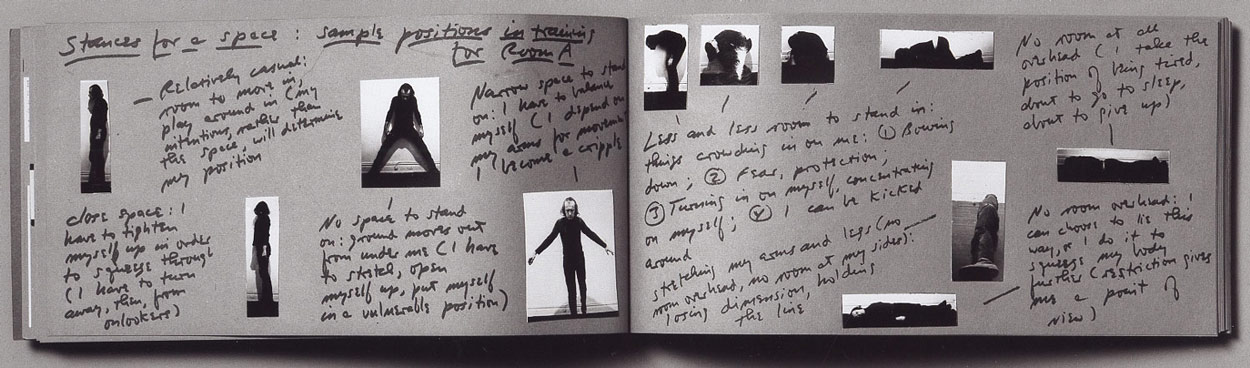 Stances for a space : sample positions in training
for Room A
— Relatively casual:
room to move in,
play around in (my
intentions, rather than
the space, will determine
my position
Narrow space to stand
on: I have to balance
myself (I depend on
my arms for movement:
I become a cripple
close space: I
have to tighten
myself up in order
to squeeze through
(I have to turn
away, then, from
onlookers)
No space to stand
on: ground moves out
from under me (I have
to stretch, open
myself up, put myself
in a vulnerable position)
Less and less room to stand in:
things crowding in on me: ① Bowing
down; ② Fear, protection;
③ Turning in on myself, concentrating
on myself; ④ I can be kicked
around
stretching my arms and legs (no
room overhead, no room at my sides):
losing dimension, holding
the line
No room at all
overhead (I take the
position of being tired,
about to go to sleep,
about to give up)
No room overhead: I
can choose to lie this
way, or I do it to
squeeze my body
further (restriction gives
me a point of
view)